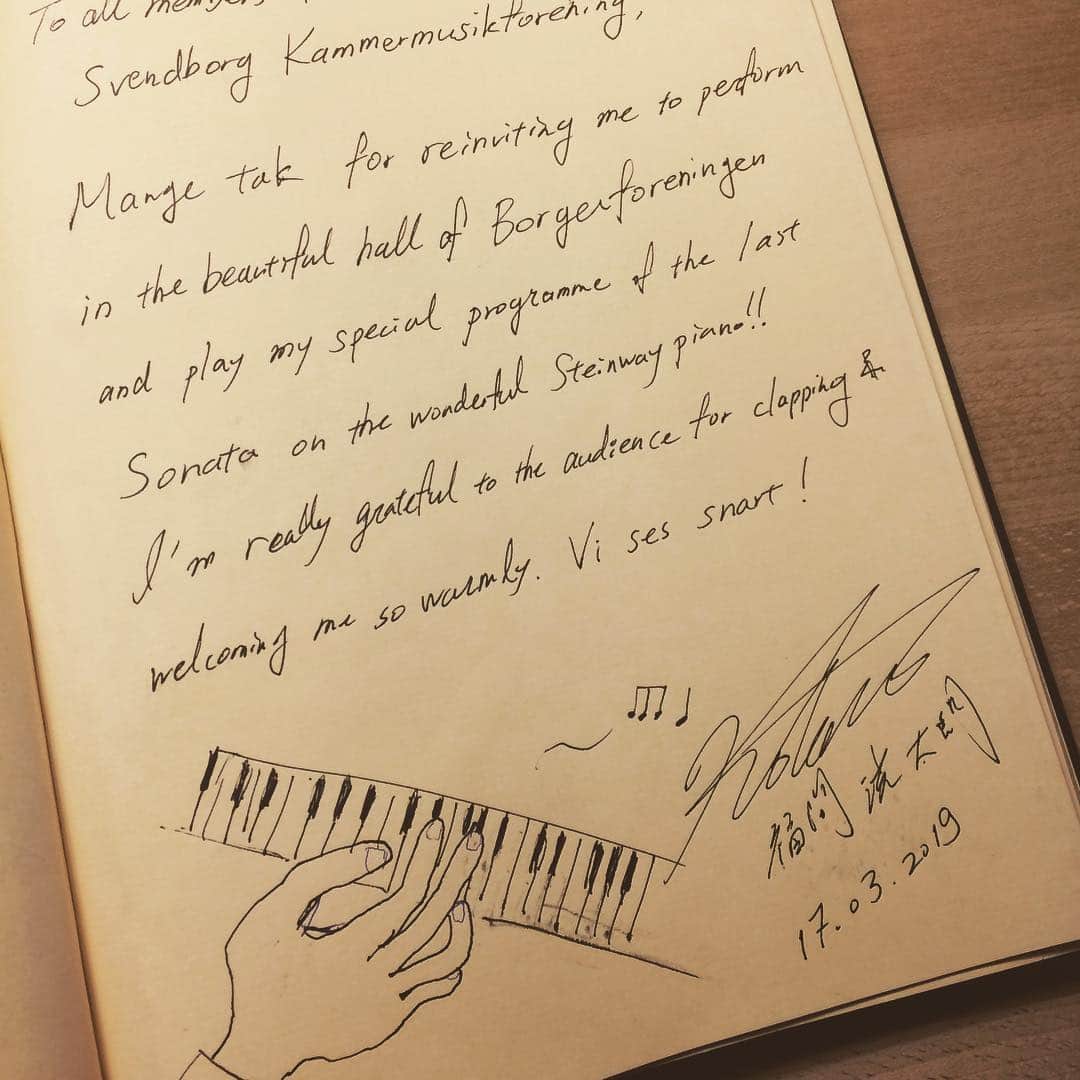 To all members
Svendborg Kammermusikforening,
Mange tak for reinviting me to perform
in the beautiful hall of Borgerforeningen
and play my special programme of the last
Sonata on the wonderful Steinway piano!!
I'm really grateful to the audience for clapping &
welcoming me so warmly. Vi ses snart!
Kotaro
福間 洸太朗
17.03.2019